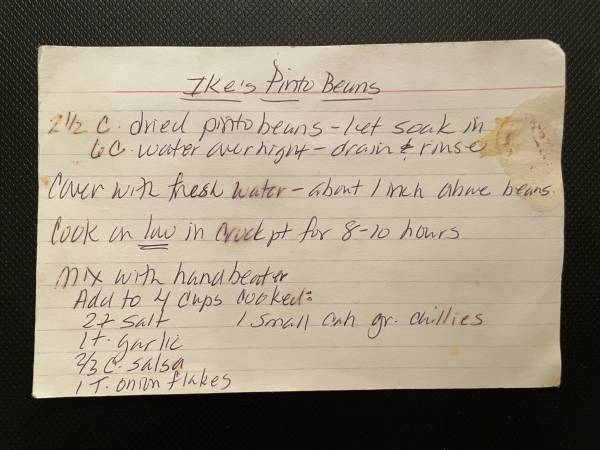 Ike's Pinto Beans
2 1/2 C. dried pinto beans - let soak in
6 C. water overnight - drain & rinse
Cover with fresh water - about 1 inch above beans.
Cook on low in Crockpt for 8-10 hours
Mix with hand beater
Add to 4 cups cooked:
2 t salt 1 small can gr. chillies
1 t. garlic
2/3 C. salsa
1 T. onion flakes